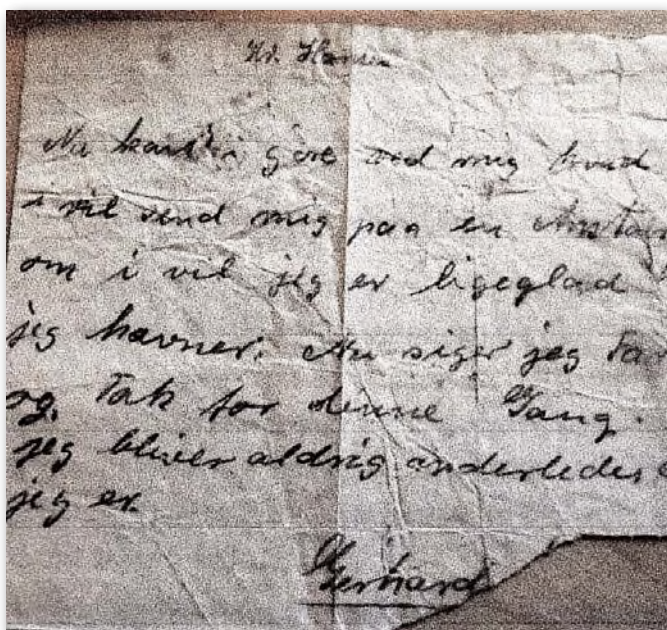 Hr. Hansen
Nu kan i gøre ved mig hvad
i vil send mig paa en Anstal
om i vil jeg er ligeglad
jeg havner. Nu siger jeg Fa
og Tak for denne Gang.
jeg bliver aldrig anderledes
jeg er.
Gerhard